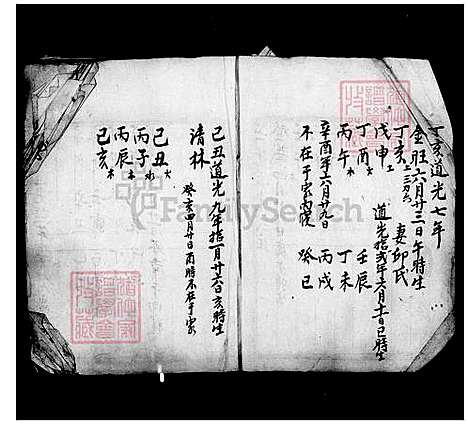 丁亥道光七年
金旺六月廿三日午時生
丁亥 妻邱氏
戊申 道光拾弍年六月十一日巳時生
丁酉 壬辰
丙午 丁未
辛酉年六月廿九日 丙戌
不在于家 癸巳
己丑道光九年拾一月廿六日亥時生
清林 癸亥四月廿日酉時不在于家
己丑火
丙子水
丙辰木
己亥木
FamilySearch